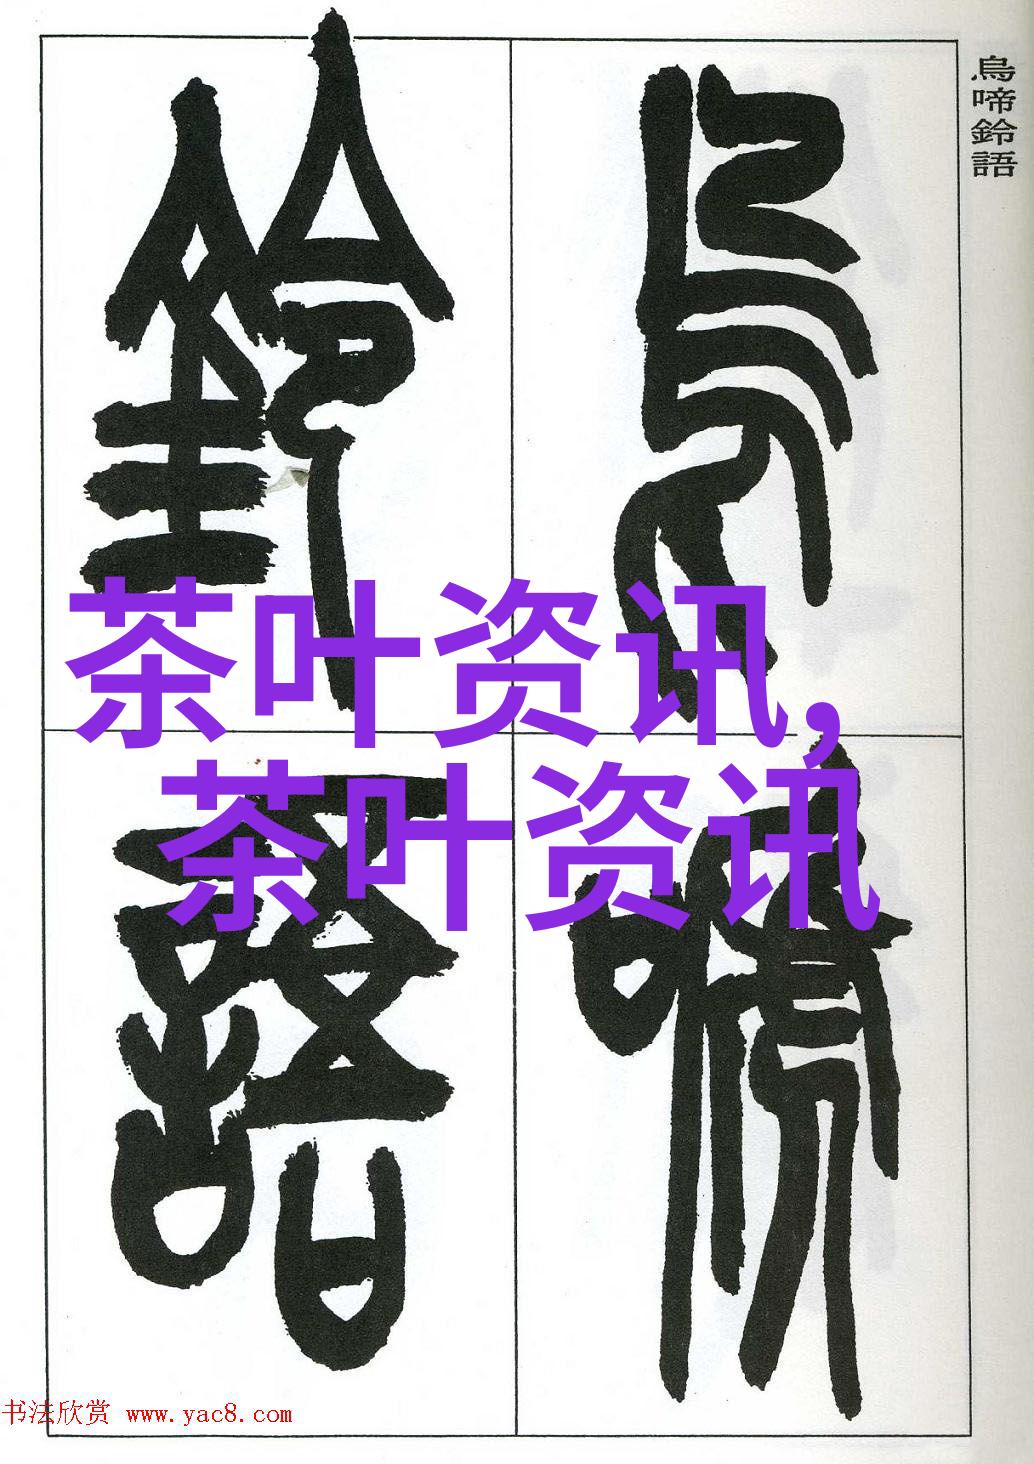 鳥啼鈴語
鳥
啼
鈴
語
茶叶资讯,
茶叶资讯
书法欣赏 www.yac8.com